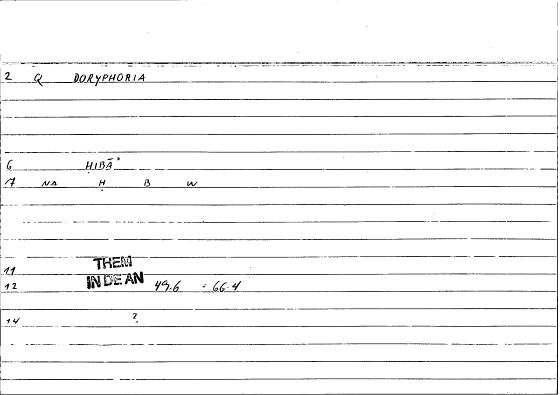 2 Q DORYPHORIA
6 ḤIBĀʾ
17 NA Ḥ B W
11 THEM
12 IN DE AN 49.6 : 66.4
14 ?